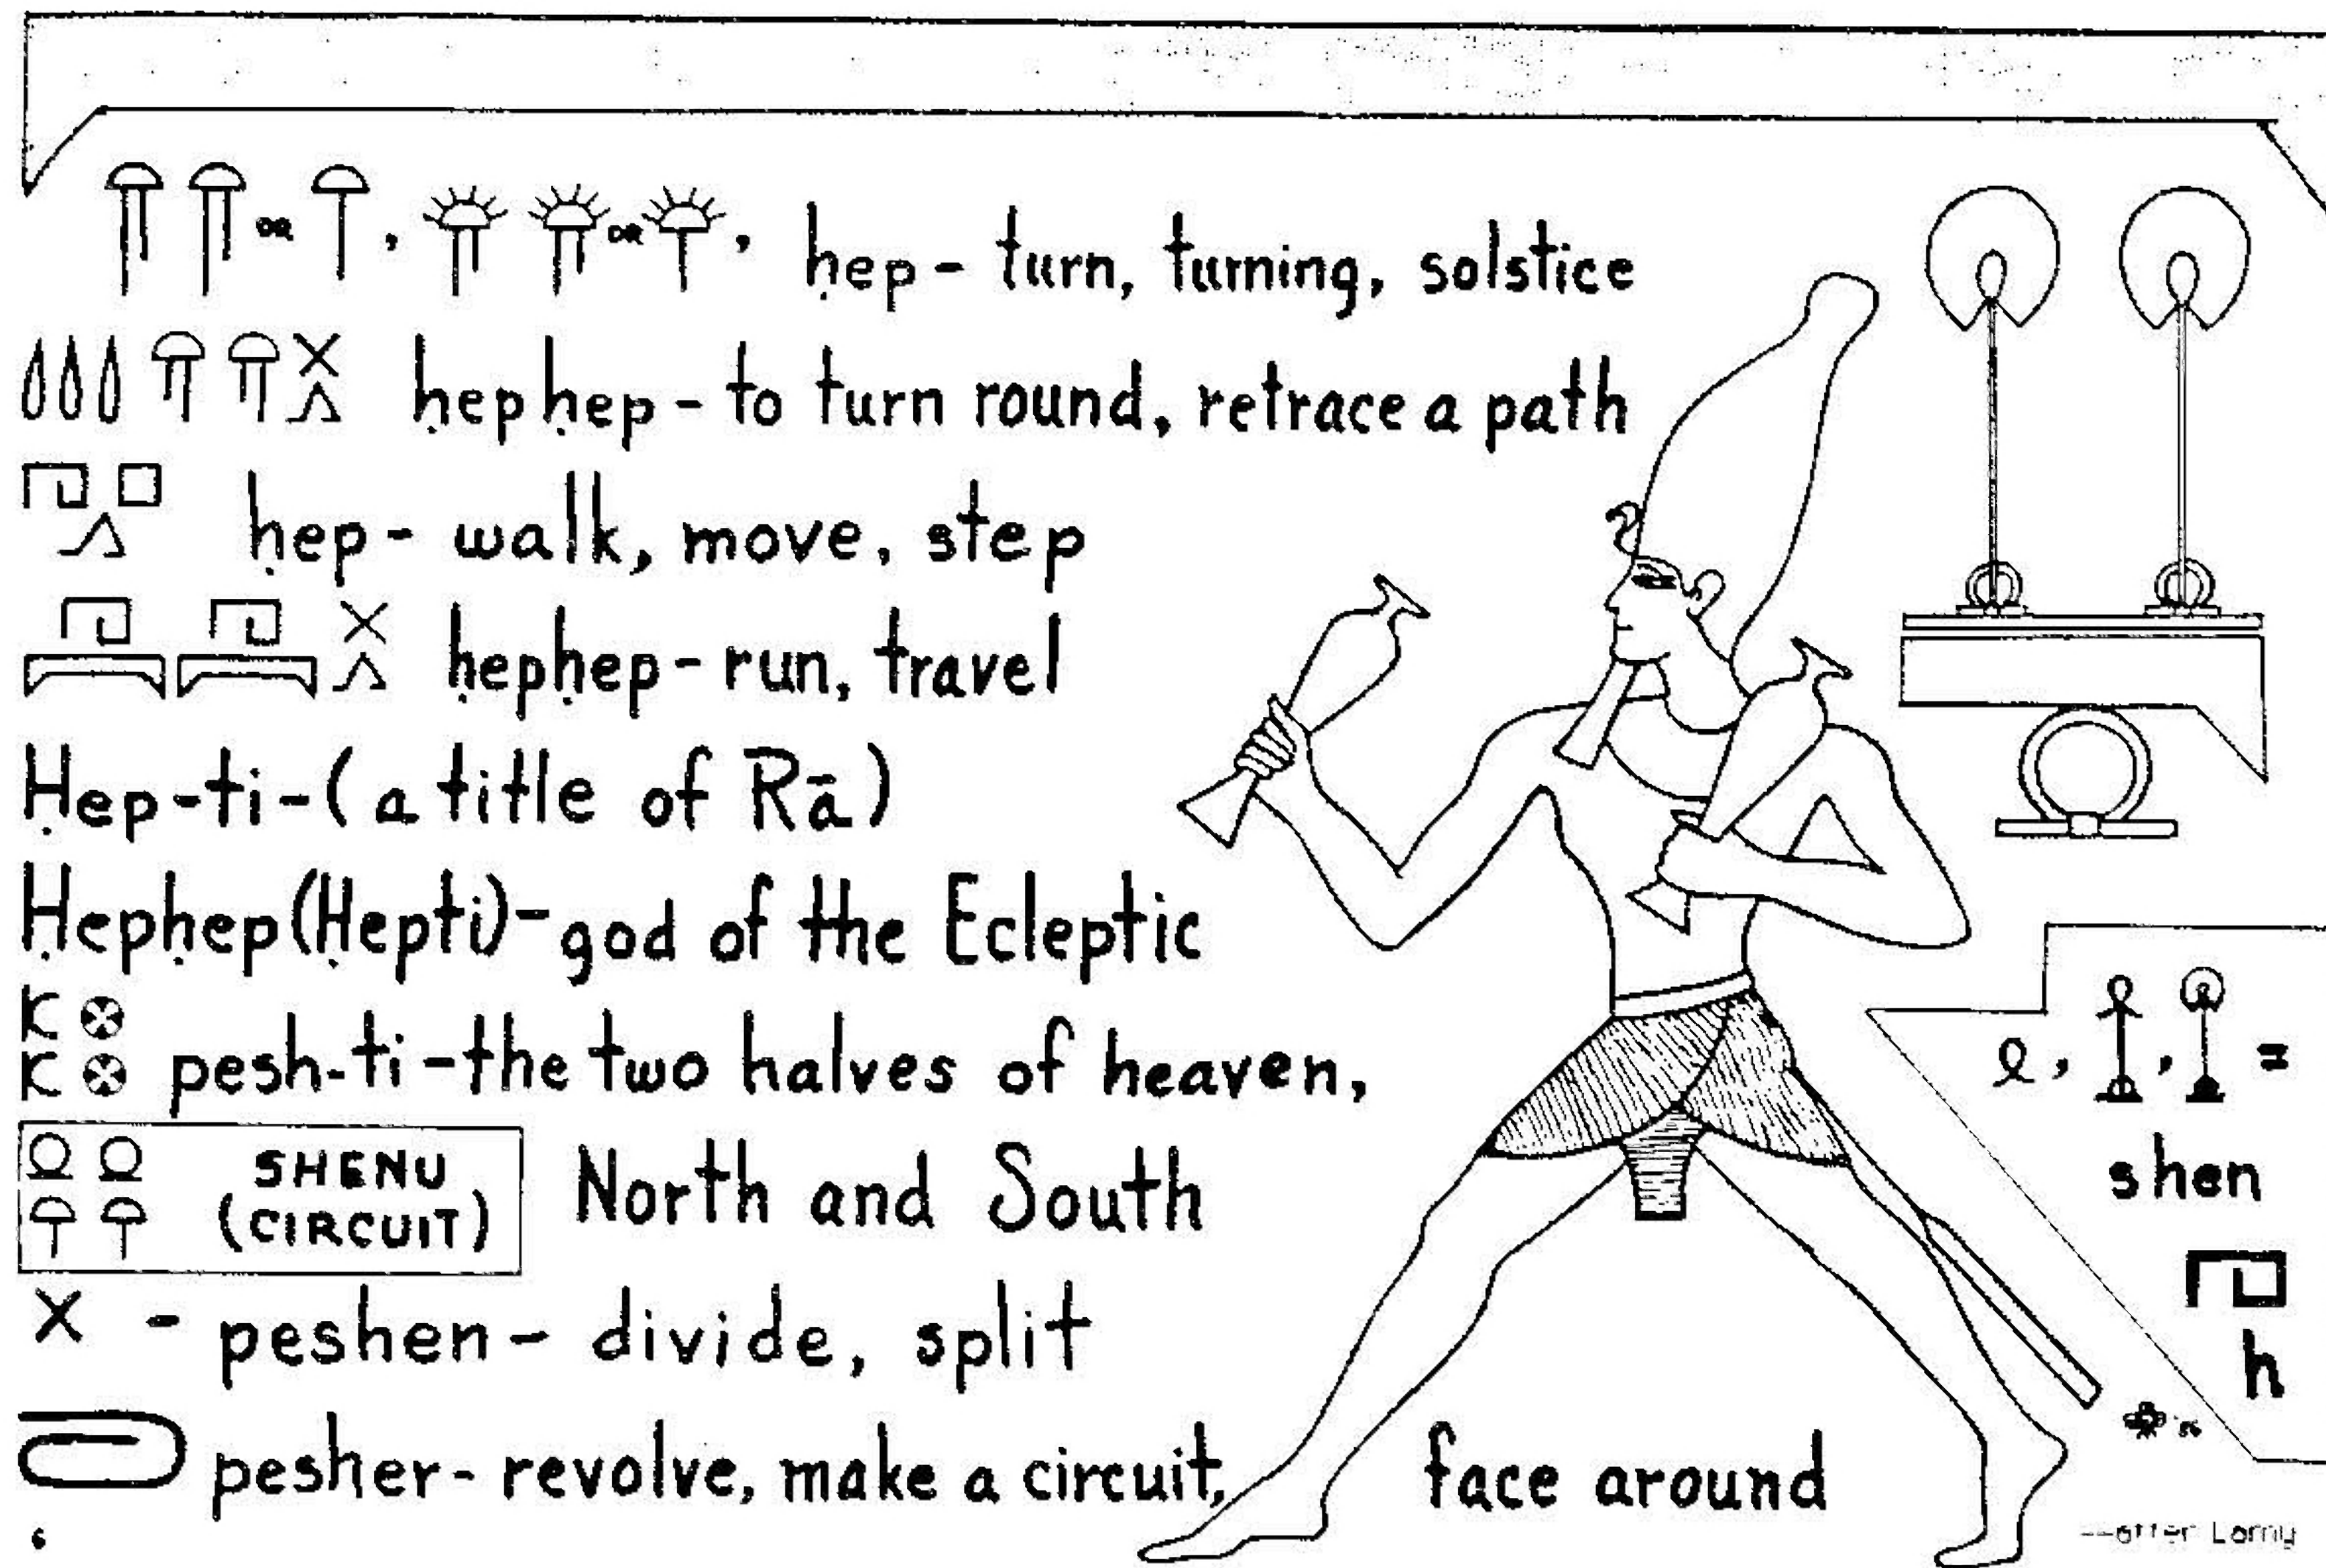 or , or , ḥep - turn, turning, solstice
ḥepḥep - to turn round, retrace a path
ḥep - walk, move, step
ḥepḥep - run, travel
Ḥep-ti-(a title of Rā)
Ḥepḥep(Ḥepti)-god of the Ecleptic
pesh-ti-the two halves of heaven,
SHENU
(CIRCUIT)
North and South
X - peshen - divide, split
pesher- revolve, make a circuit, face around
, , =
shen
h
--after Lamy